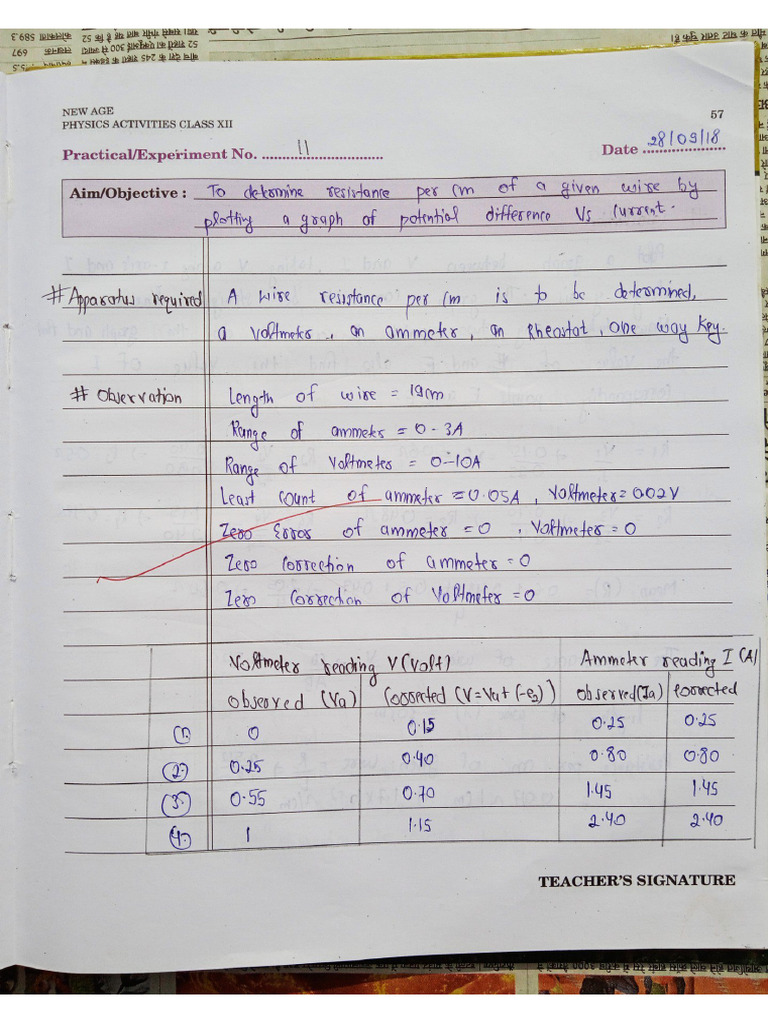 NEW AGE
PHYSICS ACTIVITIES CLASS XII
57
Practical/Experiment No. 11
Date 28/09/18
Aim/Objective : To determine resistance per cm of a given wire by
plotting a graph of potential difference Vs Current.
# Apparatus required
A wire resistance per cm is to be determined,
a voltmeter, an ammeter, an Rheostat, one way key.
# Observation
Length of wire = 19cm
Range of ammeter = 0-3A
Range of Voltmeter = 0-10A
Least count of ammeter = 0.05A, Voltmeter = 0.02V
Zero Error of ammeter = 0, Voltmeter = 0
Zero correction of ammeter = 0
Zero correction of Voltmeter = 0
Voltmeter reading V (Volt) Ammeter reading I (A)
observed (Va) Corrected (V = Va + (-e2)) observed (Ia) corrected
(1) 0 0.15 0.25 0.25
(2) 0.25 0.40 0.80 0.80
(3) 0.55 0.70 1.45 1.45
(4) 1 1.15 2.40 2.40
TEACHER'S SIGNATURE